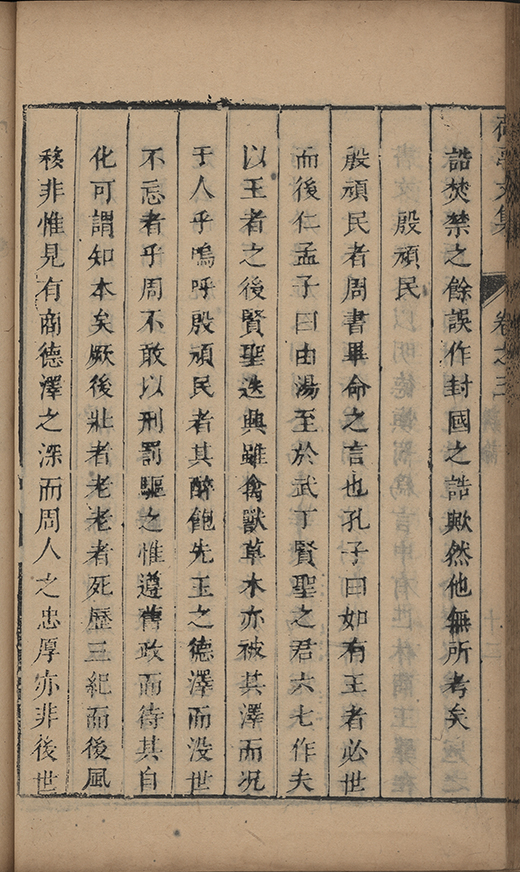 文集
卷之三
誥焚禁之餘誤作封國之誥歟然他無所考矣
殷頑民
殷頑民者周書畢命之言也孔子曰如有王者必世
而後仁孟子曰由湯至於武丁賢聖之君六七作夫
以王者之後賢聖迭興雖禽獸草木亦被其澤而况
于人乎嗚呼殷頑民者其醉飽先王之德澤而没世
不忘者乎周不敢以刑罰驅之惟遵舊政而待其自
化可謂知本矣厥後壯者老老者死歷三紀而後風
移非惟見有商德澤之深而周人之忠厚亦非後世